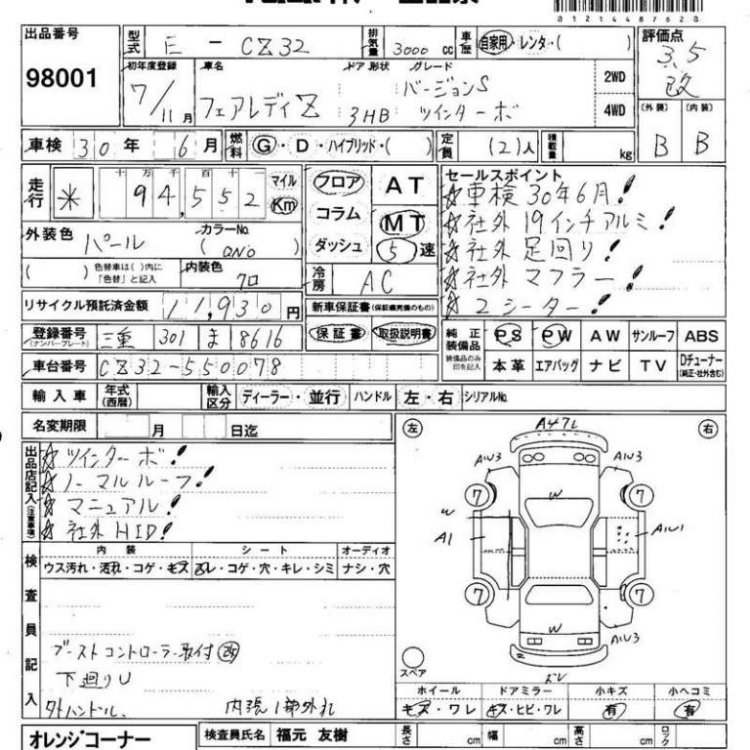 81214487628
出品番号 98001
型式 E-CZ32 排気量 3000 cc 車歴 自家用・レンタ・( )
評価点 3.5 改
初年度登録 7/11月 車名 フェアレディZ ドア形状 3HB グレード バージョンS ツインターボ 2WD 4WD
(外装) B (内装) B
車検 30年 6月 燃料 G・D・ハイブリッド・( ) 定員 (2)人 積載量 kg
走行 * 十万千百十一 94,552 マイル Km
フロア コラム ダッシュ
AT MT 5速
セールスポイント
☆車検30年6月!
☆社外19インチアルミ!
☆社外足回り!
☆社外マフラー!
☆2シーター!
外装色 パール カラーNo. (QN0)
( ) 色替車は( )内に「色替」と記入 内装色 クロ
冷房 AC
リサイクル預託済金額 11,930円
新車保証書(保証継続完備のもの)
保証書 取扱説明書
登録番号(ナンバープレート) 三重 301 ま 8616
純正装備品 装備品のみ印を記入 PS PW AW サンルーフ ABS
本革 エアバッグ ナビ TV Dチューナー(純正・社外含む)
車台番号 CZ32-550078
輸入車 年式(西暦) 輸入区分 ディーラー・並行 ハンドル 左・右 シリアルNo.
名変期限 月 日迄
出品店記入(注意事項)
☆ツインターボ!
☆ノーマルルーフ!
☆マニュアル!
☆社外HID!
検査員記入
内装 シート オーディオ
ウス汚れ・汚れ・コゲ・キズ ズレ・コゲ・穴・キレ・シミ ナシ・穴
ブーストコントローラー取付 改
下廻りU
外ハンドル、 内張1部外れ
左 右
A47L
AW3 AW3
7 7
W W
A1 AW1
7 7
W AW3
スペア ズレ
ホイール ドアミラー 小キズ 小ヘコミ
キズ・ワレ キズ・ヒビ・ワレ 有 有
オレンジコーナー 検査員氏名 福元 友樹 長さ cm 幅 cm 高さ cm ロック